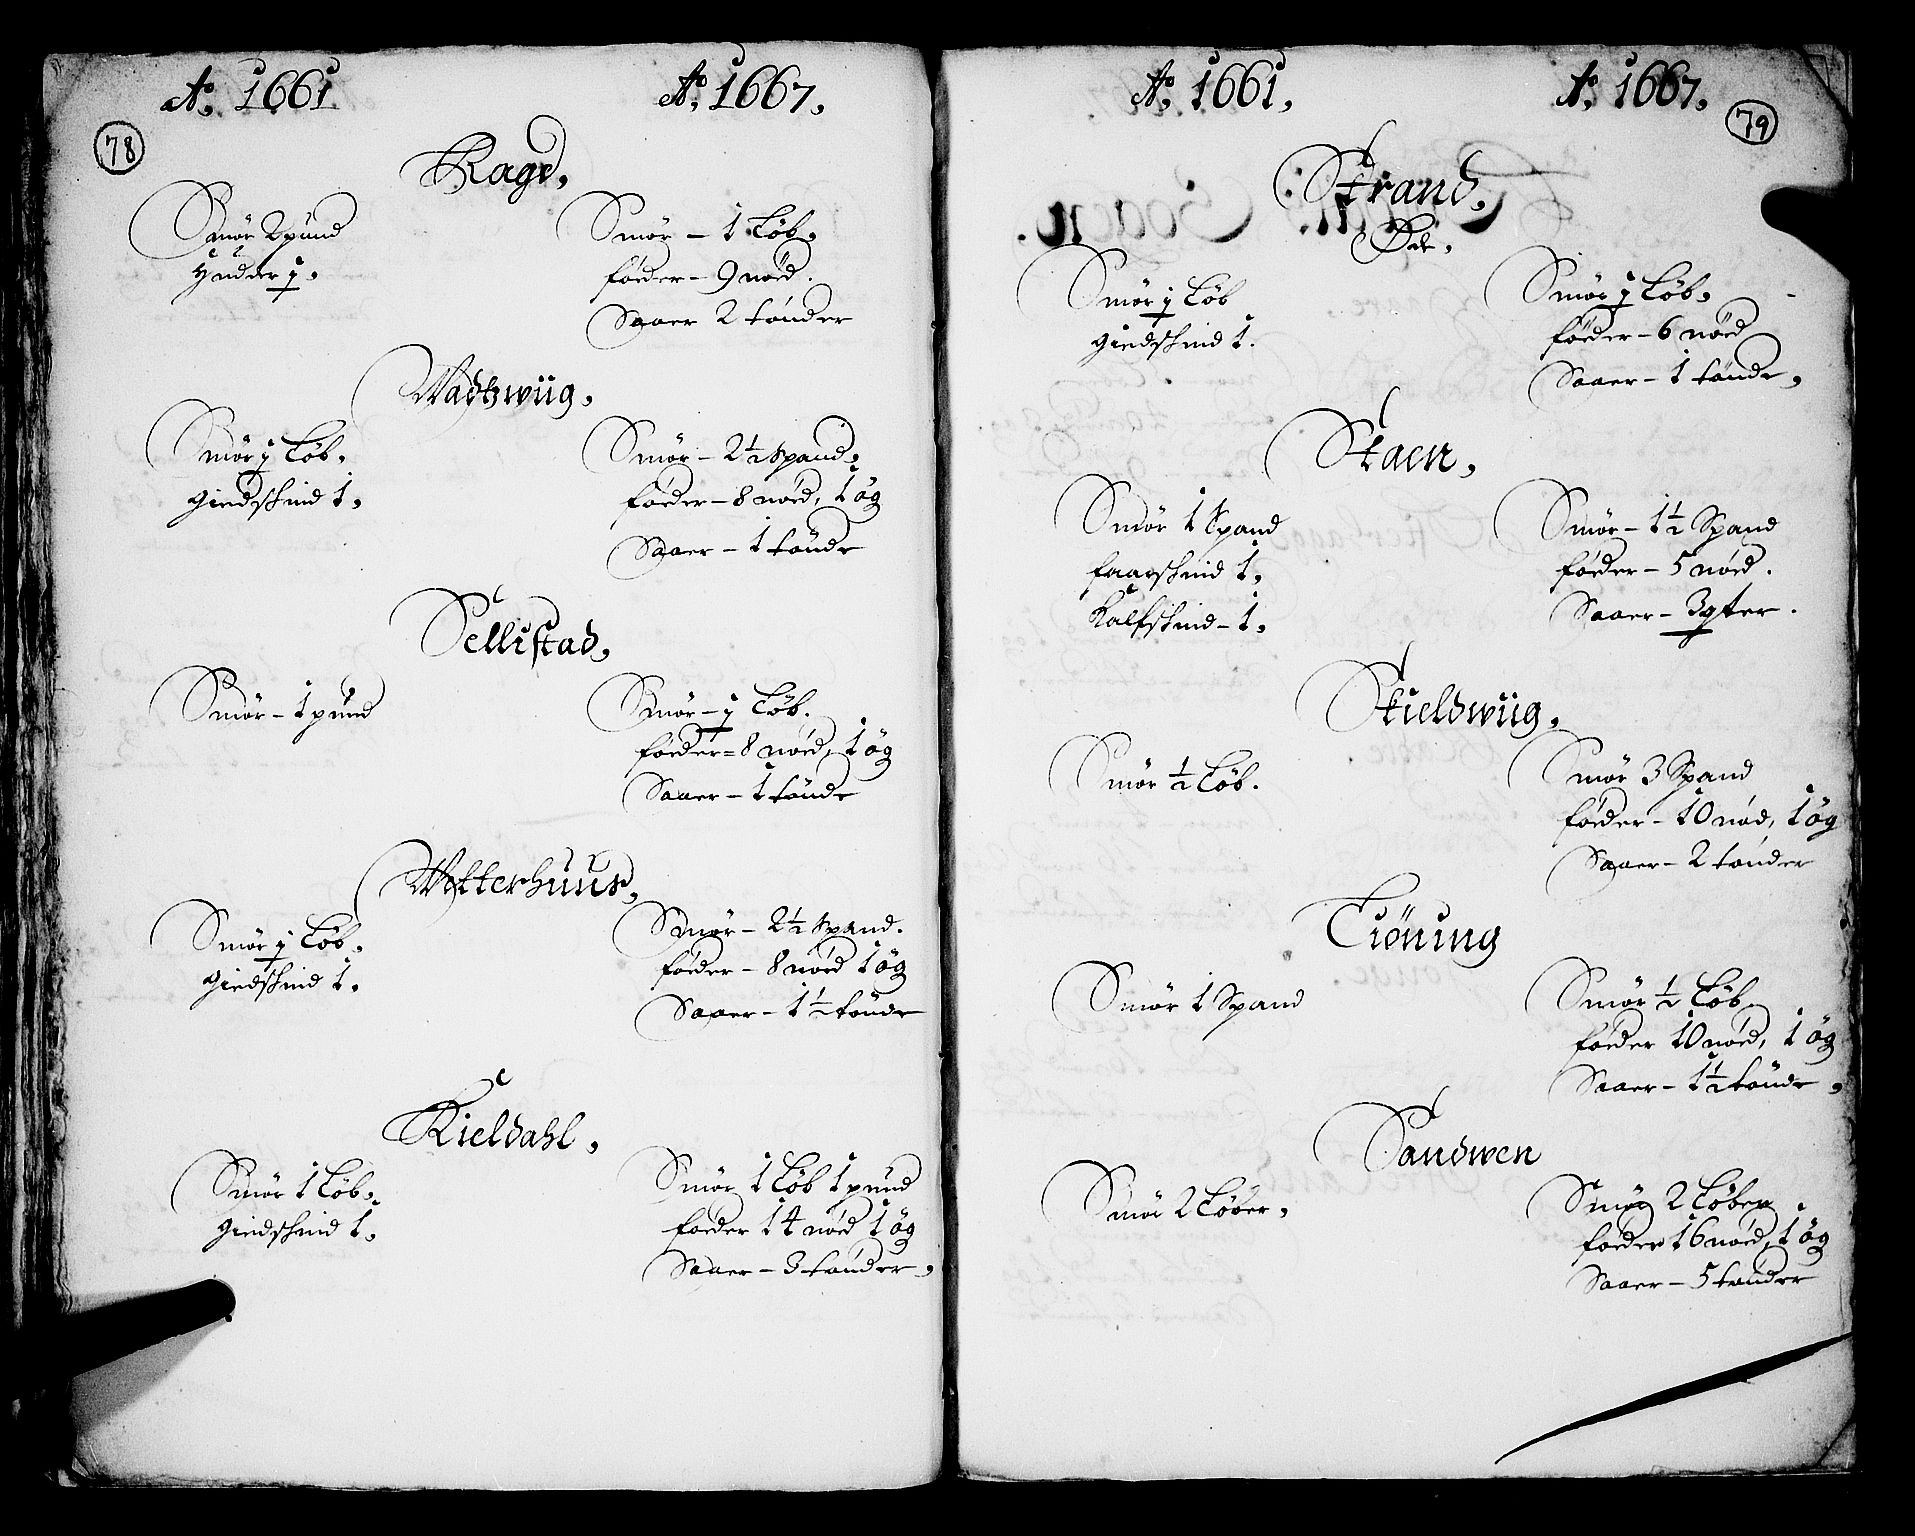 Aº. 1661
Aº. 1667.
78
Rage,
Smör 2 pund
Huder j.
Smör – 1 Löb.
föder – 9 nöed.
Saaer 2 tönder
Wadtzwiig,
Smör j Löb.
giedskind 1.
Smör – 2½ Spand.
föder – 8 nöed, 1 ög
Saaer – 1 tönde
Sellistad,
Smör – 1 pund
Smör – j Löb.
föder – 8 nöed, 1 ög
Saaer – 1 tönde
Wetterhuus,
Smör j Löb.
giedskind 1.
Smör – 2½ Spand.
föder – 8 nöed 1 ög
Saaer – 1½ tönde
Kieldahl,
Smör 1 Löb.
giedskind 1.
Smör 1 Löb 1 pund
foeder 14 nöed 1 ög
Saaer – 3 tönder,
Aº. 1661,
Aº. 1667.
79
Strand,
Öde,
Smör j Löb
giedskind 1.
Smör j Löb.
föder – 6 nöed
Saaer – 1 tönde,
Staen,
Smör 1 Spand
faarskind 1.
Kalfskind – 1.
Smör – 1½ Spand
föder – 5 nöed.
Saaer – 3 qter.
Skieldwiig,
Smör ½ Löb.
Smör 3 Spand
föder – 10 nöd, 1 ög
Saaer – 2 tönder
Tiöning
Smör 1 Spand
Smör ½ Löb
föder 10 nöed, 1 ög
Saaer – 1½ tönde,
Sandwen
Smör 2 Löber,
Smör 2 Löber.
föder 16 nöed, 1 ög
Saaer – 5 tönder